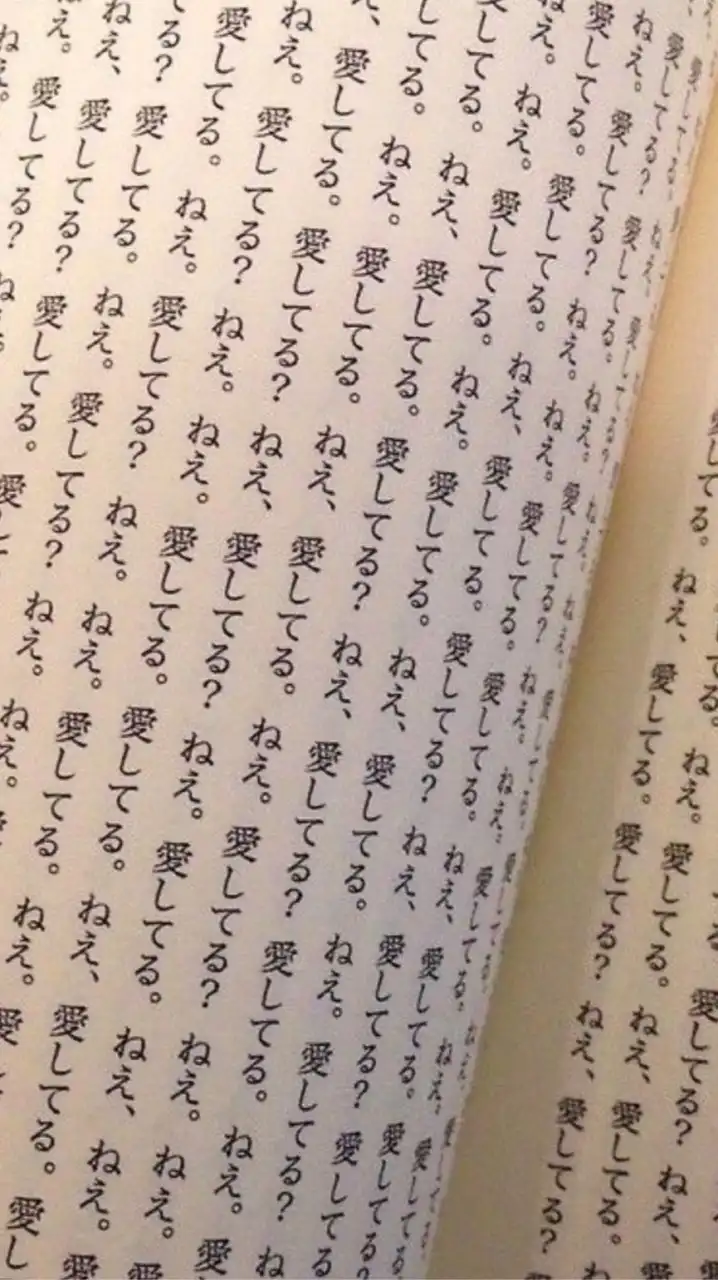 る。愛してる?ねえ、愛
してる。ねえ。愛してる。ねえ、愛してる。ね
愛してる。ねえ、愛してる。愛してる?ねえ、愛してる?
愛してる?愛してる。ねえ。愛してる?ねえ。ねえ。愛してる。ねえ。愛してる
ねえ。愛してる?ねえ。ねえ。愛してる。愛してる。ねえ、愛してる。愛してる?
愛してる。愛してる。ねえ、愛してる。愛してる?ねえ、愛してる?愛してる
え。ねえ。愛してる。ねえ。愛してる。ねえ、愛してる。ねえ。愛してる?ね
してる。ねえ、愛してる。愛してる?ねえ、愛してる?愛してる。ねえ。愛
してる。ねえ。愛してる。ねえ、愛してる。ねえ。愛してる?ねえ。ねえ。愛
愛してる。愛してる?ねえ、愛してる?ねえ。愛してる。ねえ、ねえ。愛
ねえ。愛してる?ねえ。ねえ。愛してる。愛してる。ねえ、愛してる。愛し
愛してる。ねえ。愛してる?ねえ。ねえ。愛してる。ねえ。愛
てる?愛してる。ねえ。愛してる?ねえ。ねえ。
ねえ、愛してる?愛してる。愛し
え。愛してる?ね
ねえ。